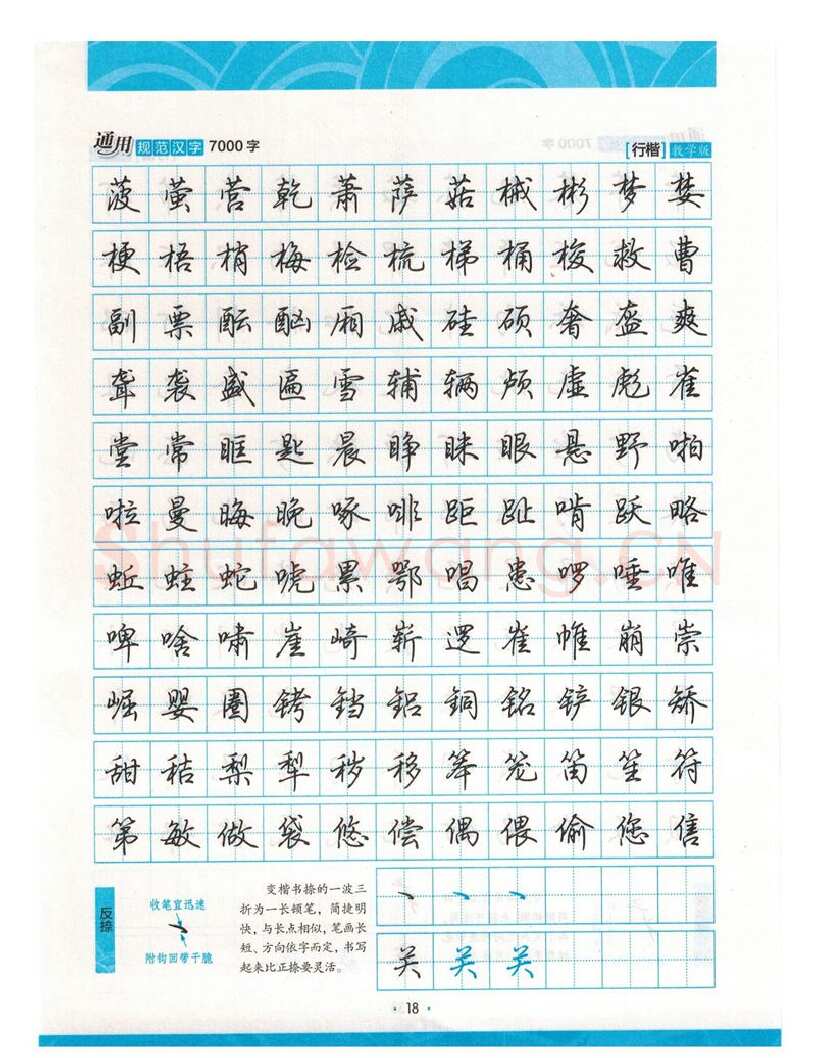 通用规范汉字 7000字 [行楷] 教学版
菠萤营乾萧萨菇械彬梦婪
梗梧梢梅检梳梯桶梭救曹
副票酝酗厢戚硅硕奢盔爽
聋袭盛匾雪辅辆颅虚彪雀
堂常眶匙晨睁眯眼悬野啪
啦曼晦晚啄啡距趾啃跃略
蚯蛀蛇唬累鄂唱患啰唾唯
啤啥啸崖崎崭逻崔帷崩崇
崛婴圈铐铛铝铜铭铲银矫
甜秸梨犁秽移笨笼笛笙符
第敏做袋悠偿偶偎偷您售
反捺
收笔宜迅速
附钩回带干脆
变楷书捺的一波三
折为一长顿笔，简捷明
快，与长点相似，笔画长
短、方向依字而定，书写
起来比正捺要灵活。
关 关 关
·18·
Shufawang.CN